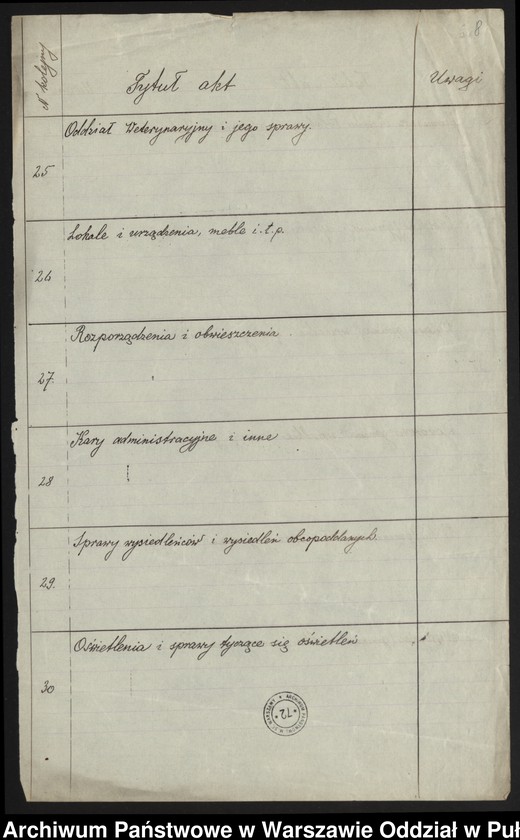 8
N kolejny
Tytuł akt
Uwagi
25
Oddział Weterynaryjny i jego sprawy.
26
Lokale i urządzenia, meble i.t.p.
27.
Rozporządzenia i obwieszczenia
28
Kary administracyjne i inne
29.
Sprawy wysiedleńców i wysiedleń obcopoddanych
30
Oświetlenia i sprawy tyczące się oświetleń
72
Archiwum Państwowe w Warszawie Oddział w Puł